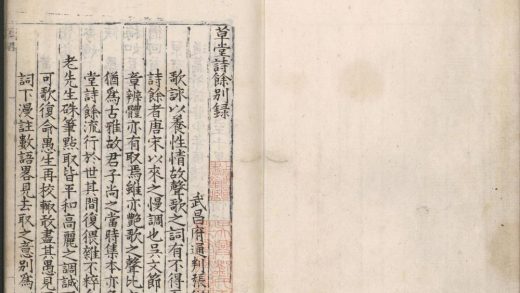 草堂詩餘別録
武昌府通判張
歌詠以養性情故聲歌之詞有不得
詩餘者唐宋以來之慢調也吳文節
章辨體亦有取焉雖亦艷歌之聲比
猶爲古雅故君子尚之當時集本亦
堂詩餘流行於世其間復猥雜不粹
老先生硃筆㸃取皆平和高麗之調誠
可歌復命愚生再校輒敢盡其愚見
詞下漫註數語畧見去取之意別爲